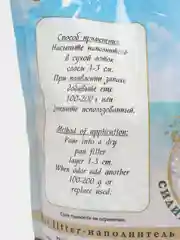 Способ применения:
Насыпьте наполнитель
в сухой лоток
слоем 3-5 см.
При появлении запаха
добавьте еще
100-200 г или
замените использованный.
Method of application:
Pour into a dry
pan filler
layer 3-5 cm.
When odor add another
100-200 g or
replace used.
Срок годности не ограничен.
litter-наполнитель